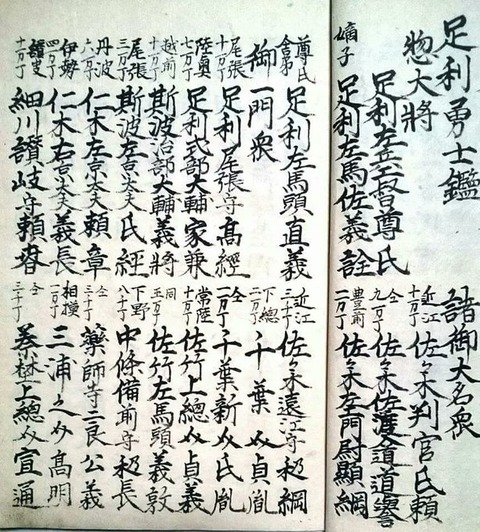 足利勇士鑑
惣大將
足利左兵衛督尊氏
嫡子 足利左馬佐義詮
諸御大名衆
近江 十万丁 佐々木判官氏頼
仝 九万丁 佐々木佐渡入道道譽
豊前 二万丁 佐々木左門尉顯綱
尊氏舎弟 足利左馬頭直義
御一門衆
尾張 十万丁 足利尾張守高經
陸奥 七万丁 足利式部大輔家兼
越前 十万丁 斯波治部大輔義將
尾張 三万丁 斯波左京大夫氏經
丹波 六万丁 仁木左京大夫頼章
伊勢 四万丁 仁木右京大夫義長
讃岐 十万丁 細川讃岐守頼春
近江 三十丁 佐々木遠江守秀綱
下總 二万丁 千葉介貞胤
仝 一万丁 千葉新介氏胤
常陸 十万丁 佐竹上總介貞義
同 五万丁 佐竹左馬頭義敦
下野 八十丁 中條備前守秀長
仝 三十丁 薬師寺二良公義
相模 一万丁 三浦之介高明
仝 三十丁 上總介宣通